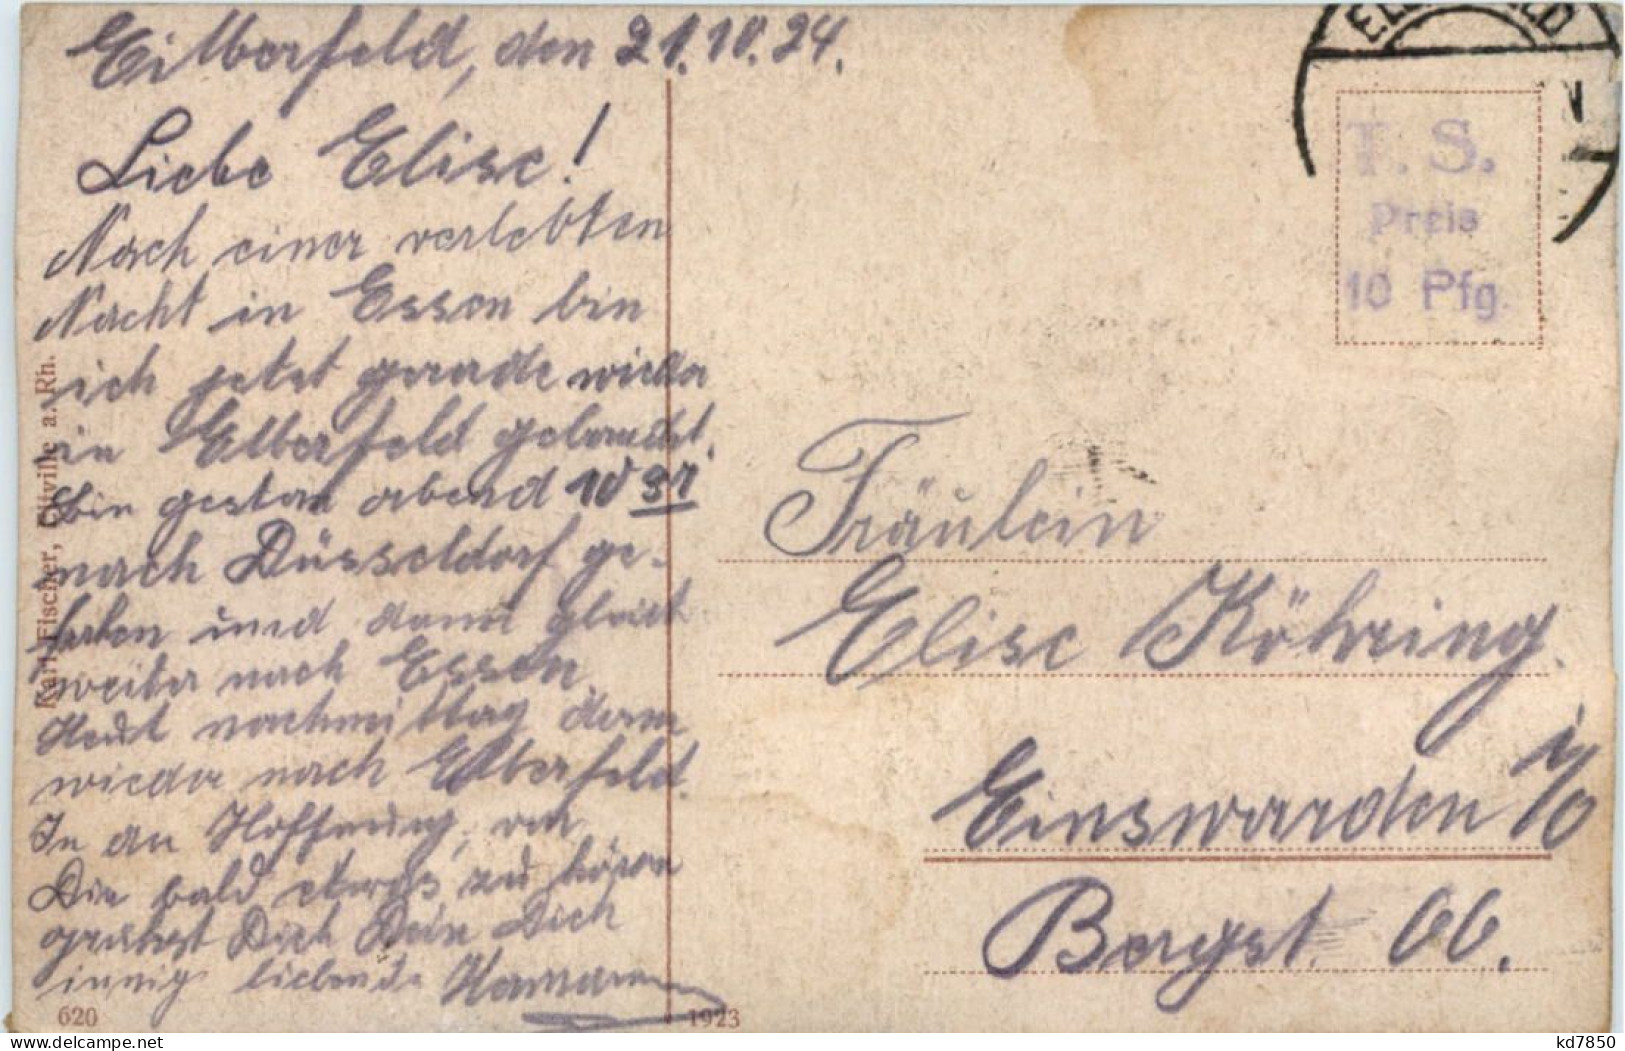 Elberfeld, den 21.10.24.
Liebe Elise!
Nach einer verlebten
Nacht in Essen bin
ich jetzt gerade wieder
in Elberfeld gelandet.
Bin gestern abend 10 37
nach Düsseldorf ge-
fahren und dann gleich
weiter nach Essen.
Heut nachmittag dann
wieder nach Elberfeld.
In der Hoffnung, von
Dir bald etwas zu hören
grüßt Dich Dein Dich
innig liebender Hermann
620
Karl Fischer, Eltville a. Rh.
1923
T. S.
Preis
10 Pfg.
Fräulein
Elise Köhring.
Einswarden i/O
Bergst. 66.
kd7850